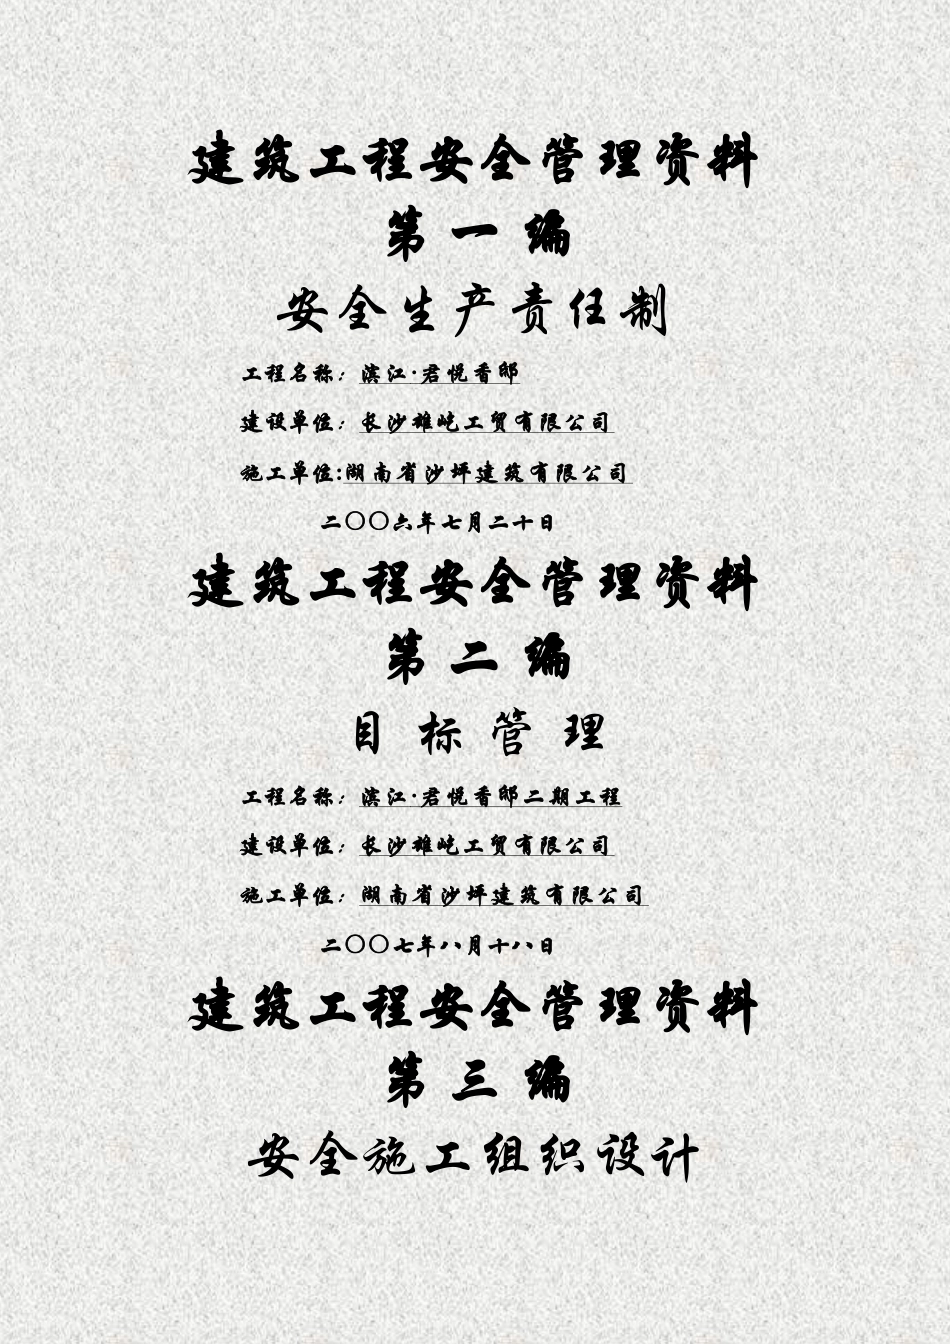 建筑工程安全管理资料
第一编
安全生产责任制
工程名称：滨江·君悦香邸
建设单位：长沙雄屹工贸有限公司
施工单位:湖南省沙坪建筑有限公司
二〇〇六年七月二十日
建筑工程安全管理资料
第二编
目标管理
工程名称：滨江·君悦香邸二期工程
建设单位：长沙雄屹工贸有限公司
施工单位：湖南省沙坪建筑有限公司
二〇〇七年八月十八日
建筑工程安全管理资料
第三编
安全施工组织设计